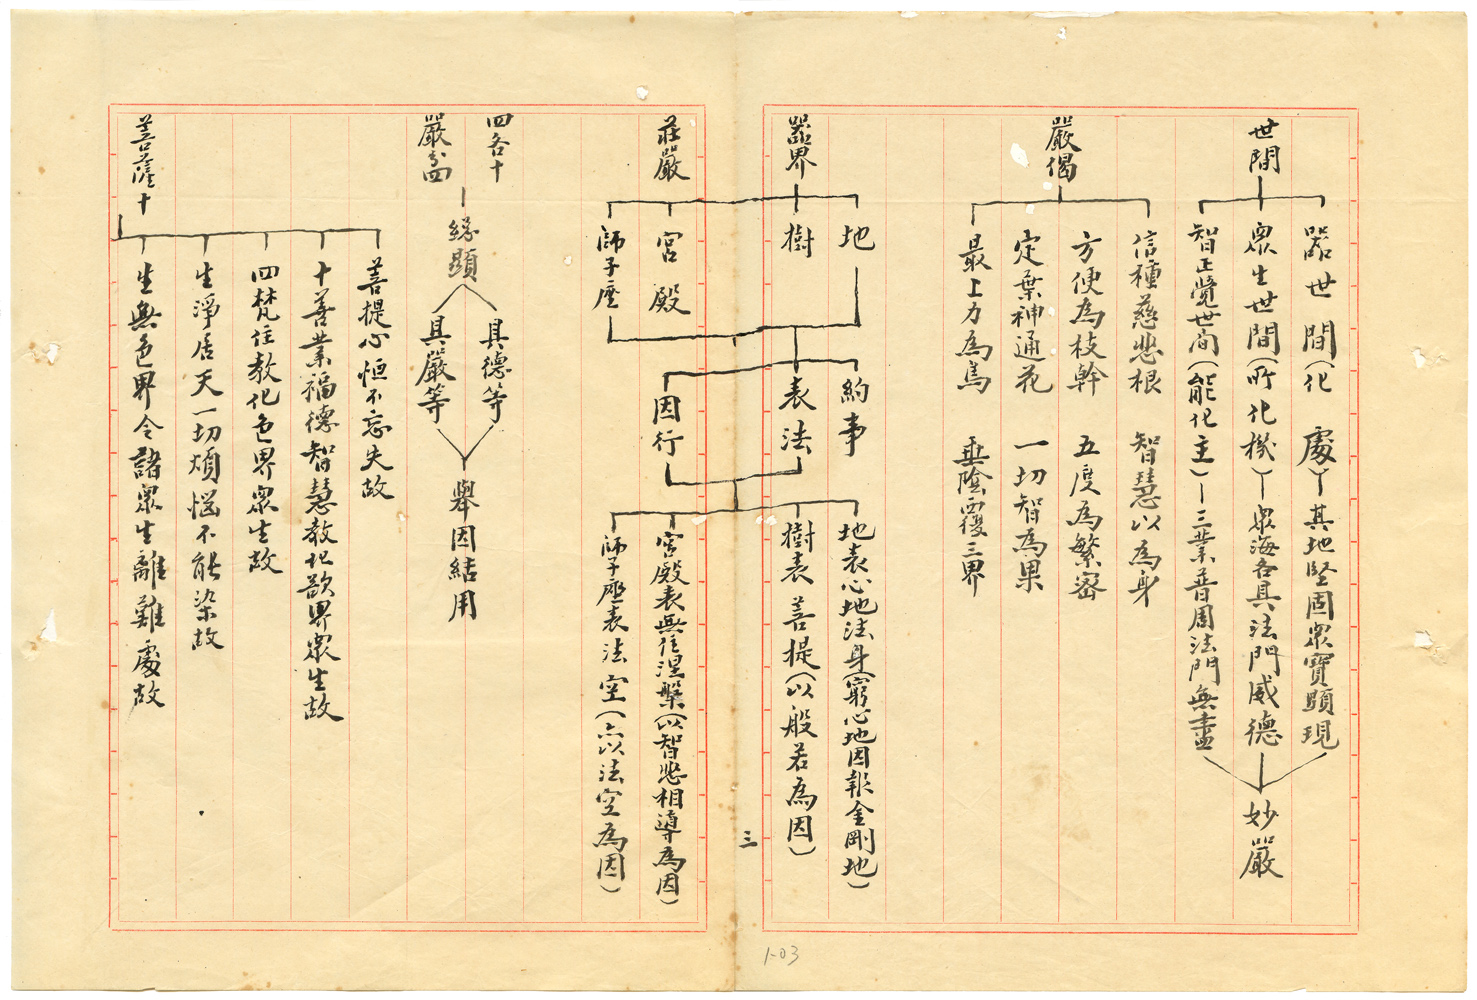 世間
器世間（化處）
眾生世間（所化機）
智正覺世間（能化主）
其地堅固眾寶顯現
眾海各具法門威德
三業普周法門無盡
妙嚴
嚴偈
信種慈悲根 智慧以為身
方便為枝幹 五度為繁密
定葉神通花 一切智為果
最上力為鳥 垂陰覆三界
器界
莊嚴
地
樹
宮殿
師子座
約事
表法
因行
地表心地法身（窮心地因報金剛地）
樹表菩提（以般若為因）
宮殿表無住涅槃（以智悲相導為因）
師子座表法空（亦以法空為因）
三
四各十
嚴為四
緣顯
具德等
具嚴等
舉因結用
菩薩十
菩提心恒不忘失故
十善業福德智慧教化欲界眾生故
四梵住教化色界眾生故
生淨居天一切煩惱不能染故
生無色界令諸眾生離難處故
1-03